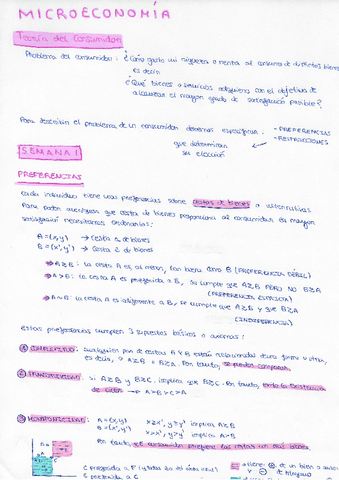 MICROECONOMÍA
Teoría del Consumidor
Problema del consumidor: ¿Cómo gasto mi riqueza o renta al consumo de distintos bienes
es decir
¿Qué bienes o servicios adquiero con el objetivo de
alcanzar el mayor grado de satisfacción posible?
Para describir el problema de un consumidor debemos especificar: - PREFERENCIAS
- RESTRICCIONES
que determinan
su elección
SEMANA 1
PREFERENCIAS
Cada individuo tiene unas preferencias sobre cestas de bienes o alternativas
Para poder averiguar que cesta de bienes proporciona al consumidor su mayor
satisfacción necesitamos ordenarlas:
A = (x,y) → cesta 1 de bienes
B = (x',y') → cesta 2 de bienes
A≿B: la cesta A es al menos, tan buena como B (PREFERENCIA DÉBIL)
A≻B: la cesta A es preferida a B, se cumple que A≿B PERO NO B≿A
(PREFERENCIA ESTRICTA)
A∼B: la cesta A es indiferente a B, se cumple que A≿B y que B≿A
(INDIFERENCIA)
Estas preferencias cumplen 3 supuestos básicos o axiomas:
① COMPLETITUD: cualquier par de cestas A y B están relacionadas de una forma u otra,
es decir, o A≿B o B≿A. Por tanto, se pueden comparar.
② TRANSITIVIDAD: si A≿B y B≿C, implica que A≿C. Por tanto, evita la existencia
de ciclos → A≻B≻C≻A
③ MONOTONICIDAD: A = (x,y) x≥x', y≥y' implica A≿B
B = (x',y') x>x', y>y' implica A≻B
Por tanto, el consumidor prefiere las cestas con más bienes.